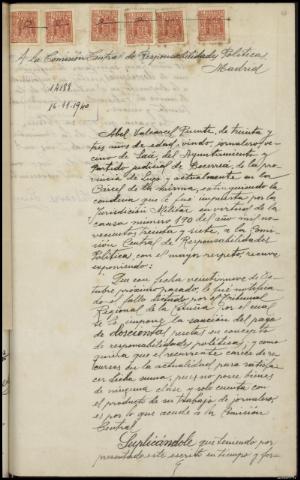 A la Comisión Central de Responsabilidades Políticas
Madrid
16-11-1940
Abel Valcarcel Puente, de treinta y
tres años de edad, viudo, jornalero, ve-
cino de del Ayuntamiento y
Partido judicial de Becerreá de la pro-
vincia de Lugo, y actualmente en la
Cárcel de la misma, extinguiendo la
condena que le fue impuesta por la
Jurisdicción Militar en virtud de la
causa número 190 del año mil no-
vecientos treinta y siete, a la Comi-
sión Central de Responsabilidades
Políticas, con el mayor respeto recurre
exponiendo:
Que con fecha veintinueve de Oc-
tubre próximo pasado, le fué notifica-
do el fallo dictado por el Tribunal
Regional de la Coruña por el cual
se le impone la sanción del pago
de doscientas pesetas en concepto
de responsabilidades políticas; y como
quiera que el recurrente carece de re-
cursos en la actualidad para satisfa-
cer dicha suma, pues no posee bienes
de ninguna clase y solo cuenta con
el producto de su trabajo de jornalero,
es por lo que acude a la Comisión
Central.
Suplicándole que teniendo por
presentado este escrito en tiempo y for-